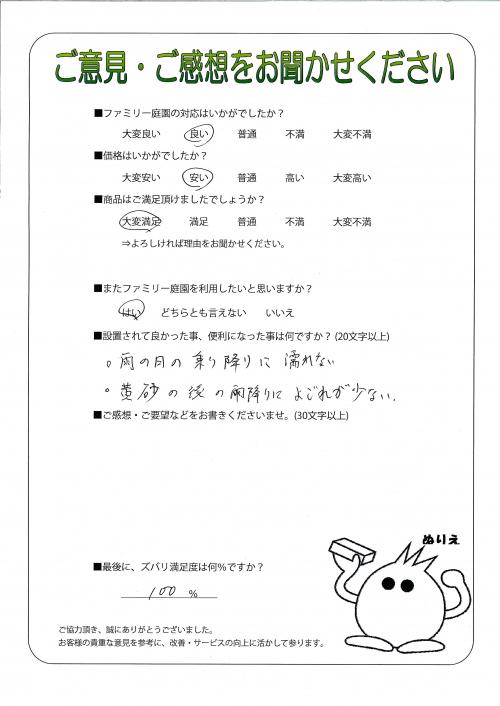 ご意見・ご感想をお聞かせください
■ファミリー庭園の対応はいかがでしたか？
大変良い 良い 普通 不満 大変不満
■価格はいかがでしたか？
大変安い 安い 普通 高い 大変高い
■商品はご満足頂けましたでしょうか？
大変満足 満足 普通 不満 大変不満
⇒よろしければ理由をお聞かせください。
■またファミリー庭園を利用したいと思いますか？
はい どちらとも言えない いいえ
■設置されて良かった事、便利になった事は何ですか？(20文字以上)
。雨の日の乗り降りに濡れない
。黄砂の後の雨降りによごれが少ない．
■ご感想・ご要望などをお書きくださいませ。(30文字以上)
ぬりえ
■最後に、ズバリ満足度は何％ですか？
100 ％
ご協力頂き、誠にありがとうございました。
お客様の貴重な意見を参考に、改善・サービスの向上に活かして参ります。